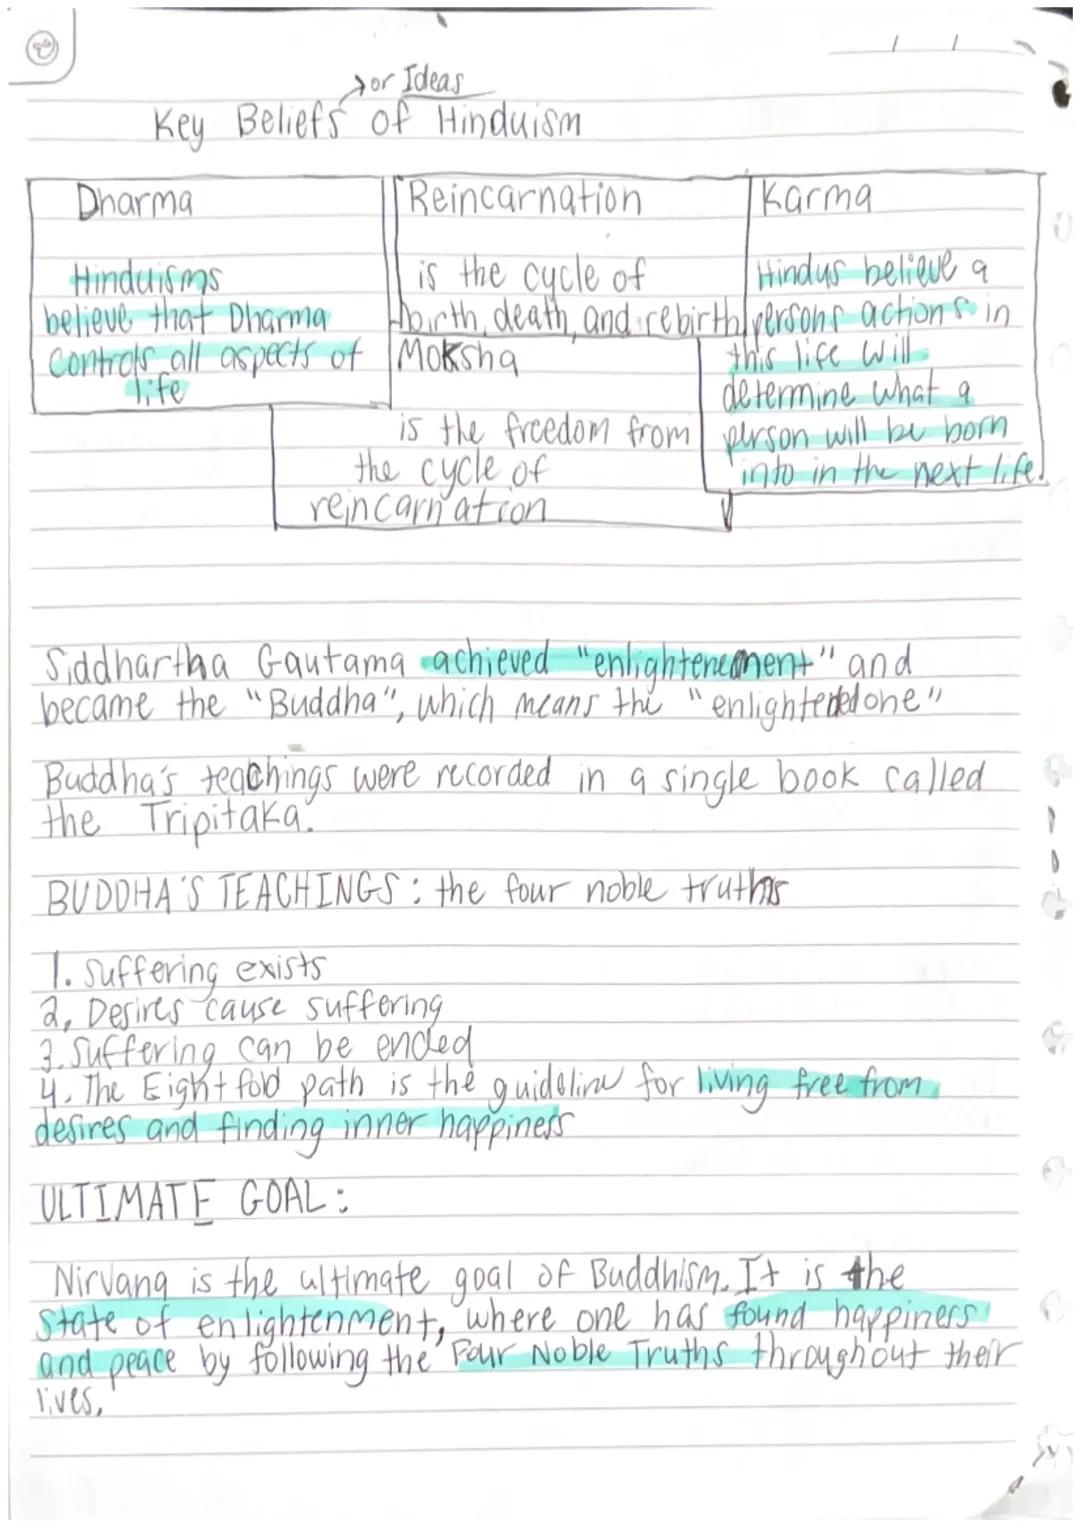 or Ideas
Key Beliefs of Hinduism
Dharma
Hinduisms
believe that Dharma
Controls all aspects of
life
Reincarnation
is the cycle of
birth, death, and rebirth
Moksha
is the freedom from
the cycle of
reincarnation
Karma
Hindus believe a
persons actions in
this life will
determine what a
person will be born
into in the next life.
Siddhartha Gautama achieved "enlightenement" and
became the "Buddha", which means the "enlightened one"
Buddha's teachings were recorded in a single book called
the Tripitaka.
BUDDHA'S TEACHINGS: the four noble truths
1. Suffering exists
2, Desires cause suffering
3. Suffering can be ended
4. The Eight fold path is the guideline for living free from
desires and finding inner happiness
ULTIMATE GOAL:
Nirvana is the ultimate goal of Buddhism. It is the
state of enlightenment, where one has found happiness
and peace by following the Four Noble Truths throughout their
lives.